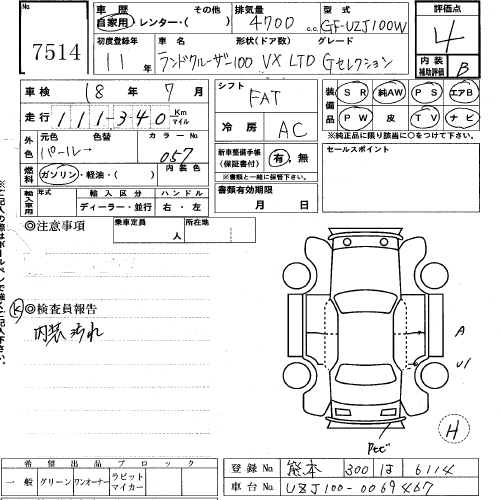 No. 7514
車歴 その他 排気量 型式 評価点
自家用・レンター・( ) 4700 c.c. GF-UZJ100W 4
初度登録年 車名 形状(ドア数) グレード
11年 ランドクルーザー100 VX LTD Gセレクション
内装補助評価 B
車検 18年 7月 シフト FAT 装備品 SR 純AW PS エアB
走行 111,340 Km マイル PW 皮 TV ナビ
冷房 AC ※純正品に限り該当に○をつけて下さい。
外色 元色 色替 カラーNo.
パール→ 057
新車整備手帳(保証書付) 有・無 セールスポイント
※書類と一緒に保管下さい。
ガソリン・軽油・( ) 内装色
書類有効期限 月 日
輸入車用 年式 輸入区分 ハンドル
ディーラー・並行 右・左
◎注意事項 乗車定員 人 所在地
K ◎検査員報告
内装汚れ
A
U1
H
希望出品ブロック
一般 グリーン ワンオーナー ラビットマイカー
登録No. 熊本 300 は 6114
車台No. UZJ100-0069467